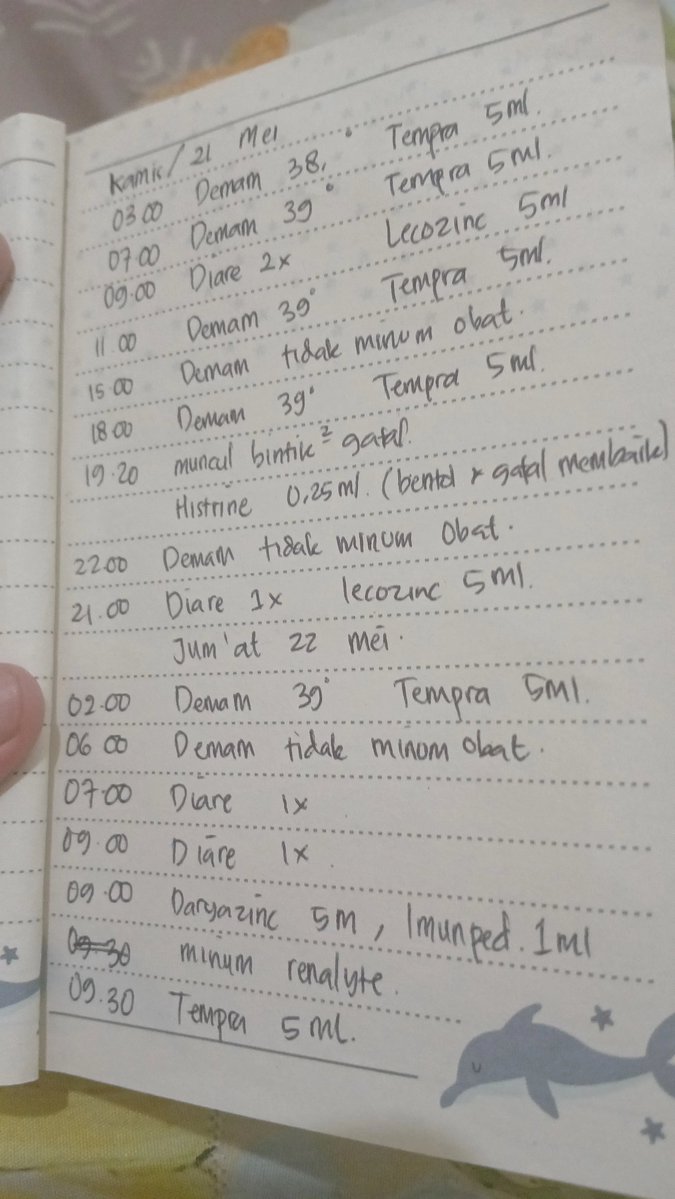 Kamis / 21 Mei
03 00 Demam 38,° Tempra 5ml.
07.00 Demam 39° Tempra 5ml.
09.00 Diare 2x Lecozinc 5ml
11.00 Demam 39° Tempra 5ml.
15.00 Demam tidak minum obat.
18 00 Demam 39° Tempra 5ml.
19.20 muncul bintik² gatal.
Histrine 0,25ml. (bentol & gatal membaik)
22.00 Demam tidak minum Obat.
21.00 Diare 1x lecozinc 5ml.
Jum'at 22 mei.
02.00 Demam 39° Tempra 5ml.
06 00 Demam tidak minum obat.
07 00 Diare 1x
09.00 Diare 1x.
09.00 Daryazinc 5m, Imunped. 1ml
09.30 minum renalyte.
09.30 Tempra 5 ml.